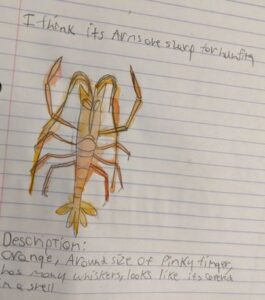 I think its Arms are sharp for hunting
Description:
Orange, Around size of Pinky finger,
has many whiskers, looks like its coverd
in a shell